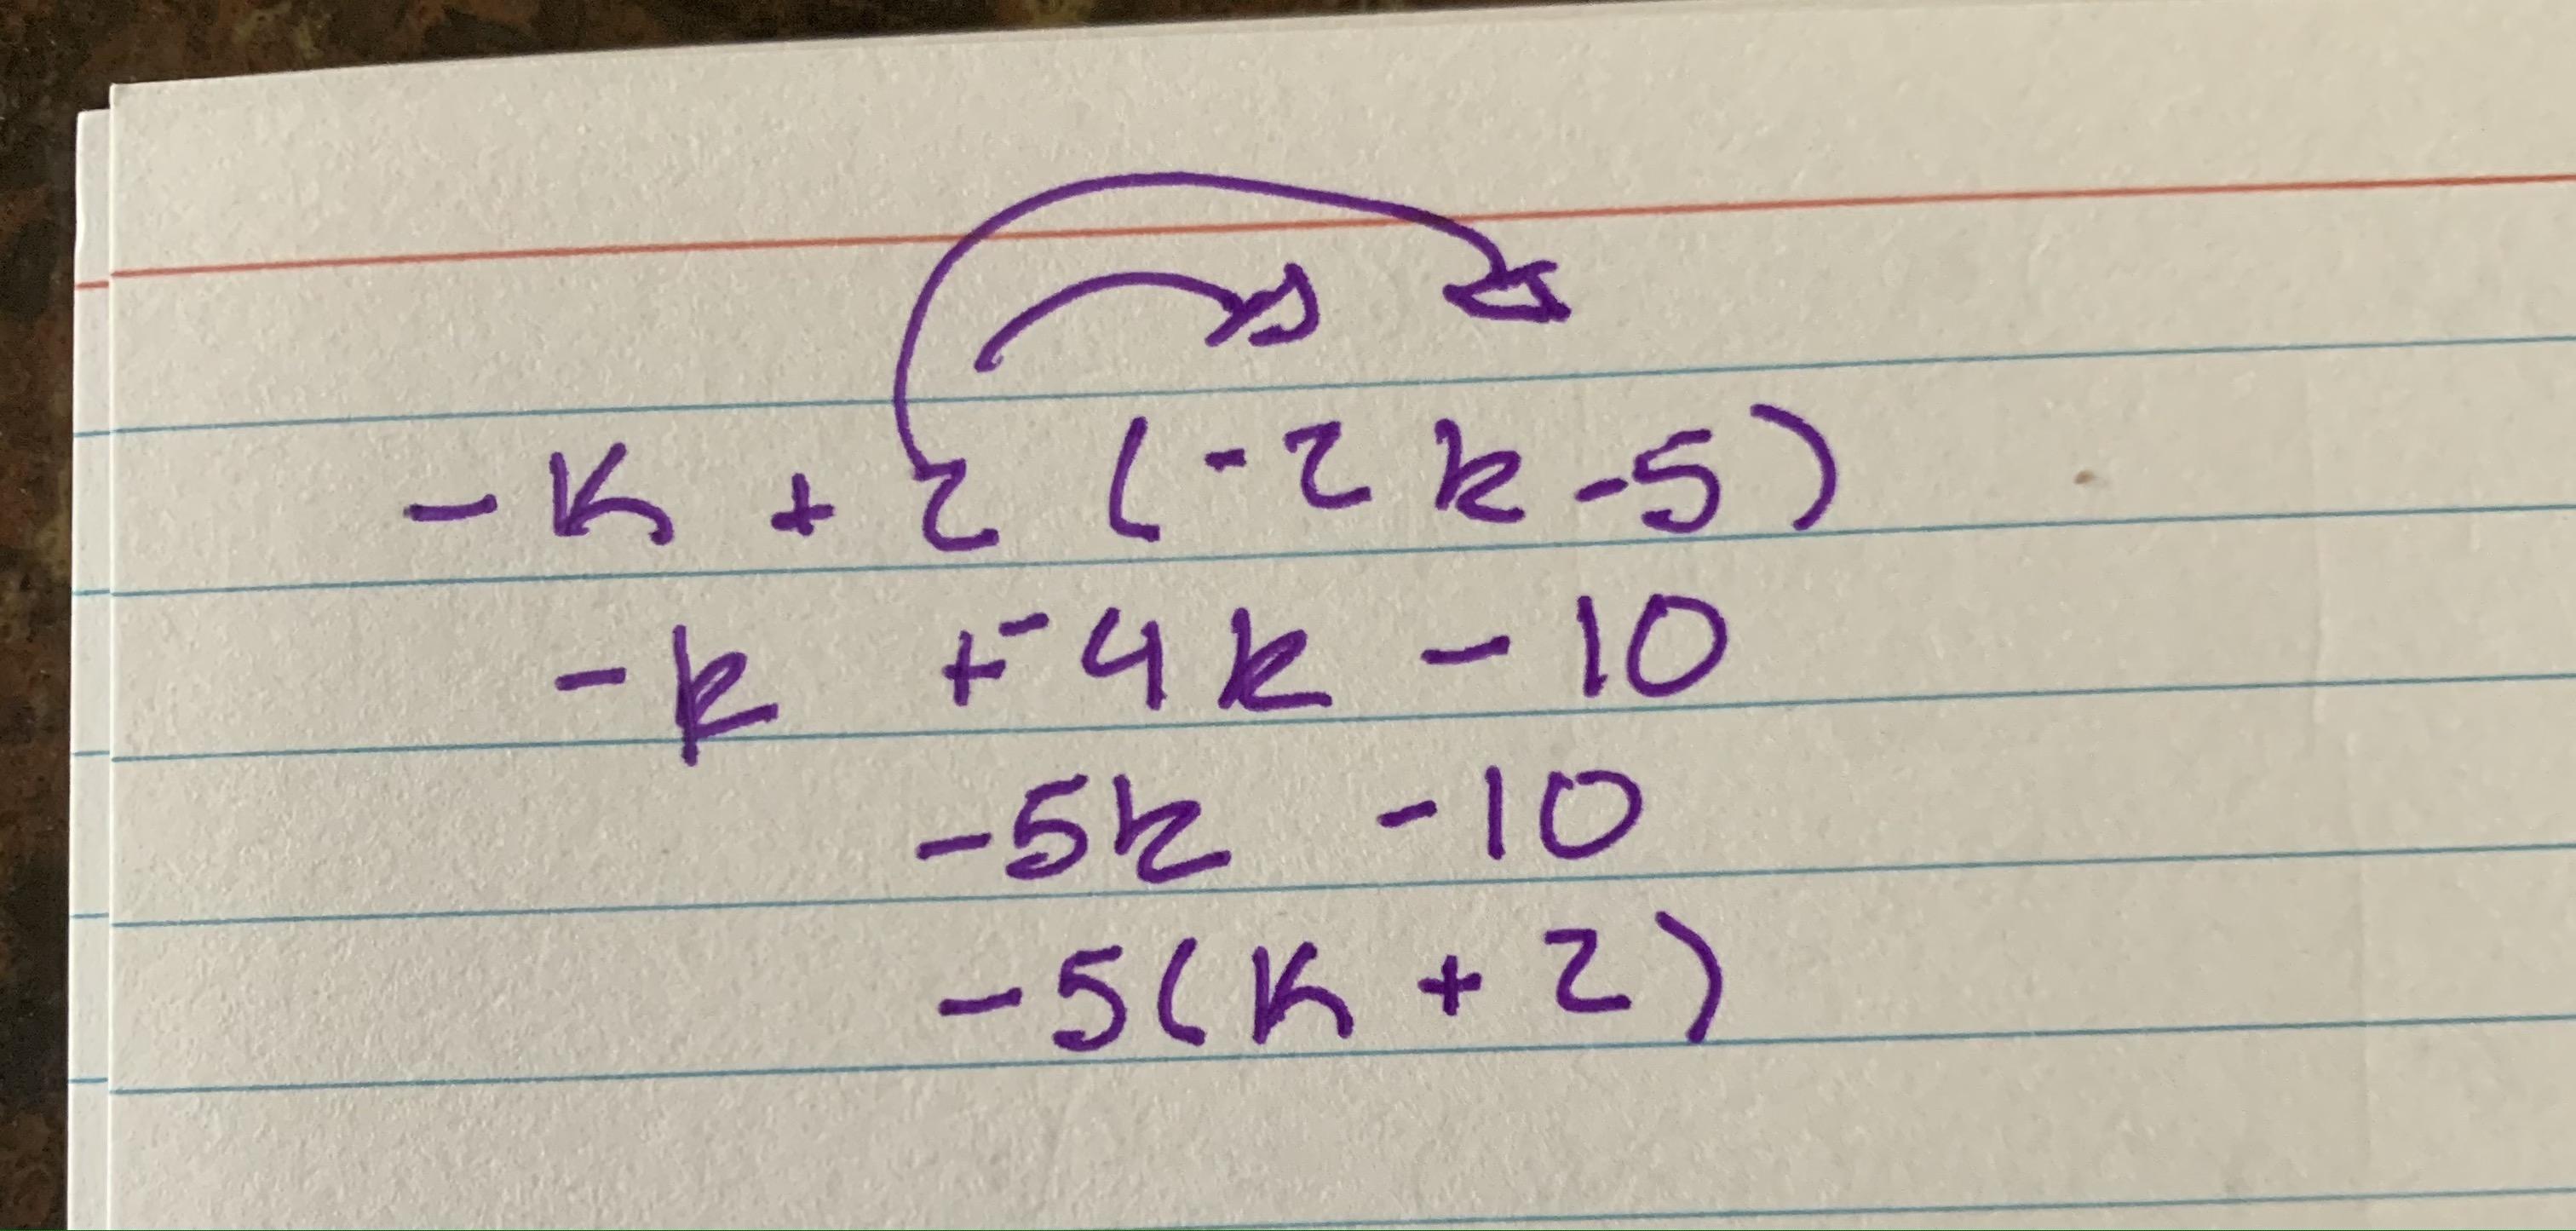 -k + 2 (-2k-5)
-k +⁻4k - 10
-5k -10
-5(k + 2)